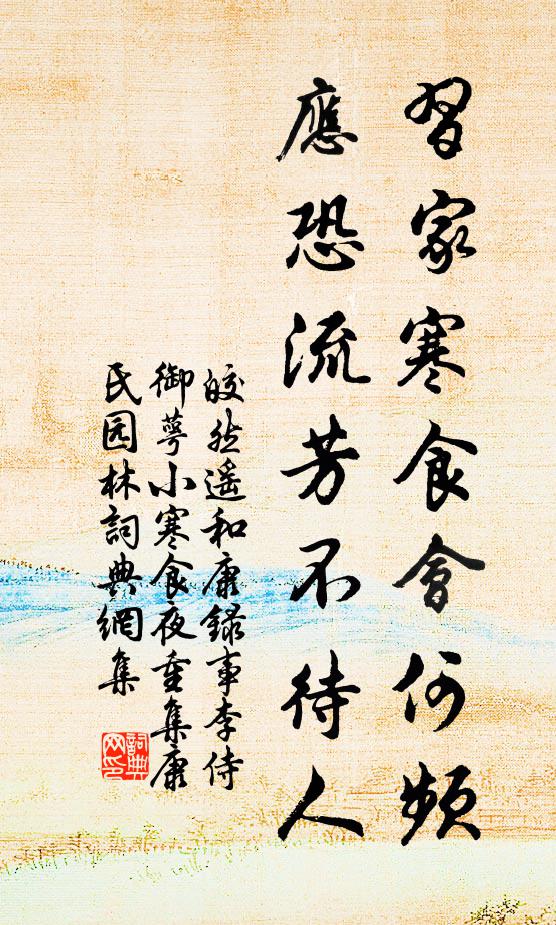 習家寒食會何頻
應恐流芳不待人
皎然遥和康錄事李侍
御萼小寒食夜重集康
氏园林詞典網集
詞典网印